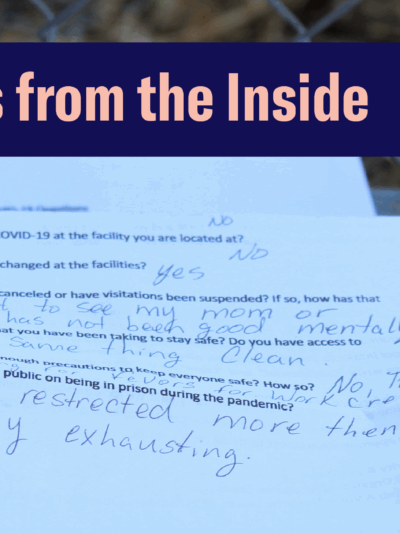 s from the Inside
No
OVID-19 at the facility you are located at?
No
changed at the facilities?
yes
canceled or have visitations been suspended? If so, how has that
to see my mom or
has not been good mentall
at you have been taking to stay safe? Do you have access to
same thing Clean.
nough precautions to keep everyone safe? How so?
No, T
for work cre
public on being in prison during the pandemic?
restrected more then
y exhausting.